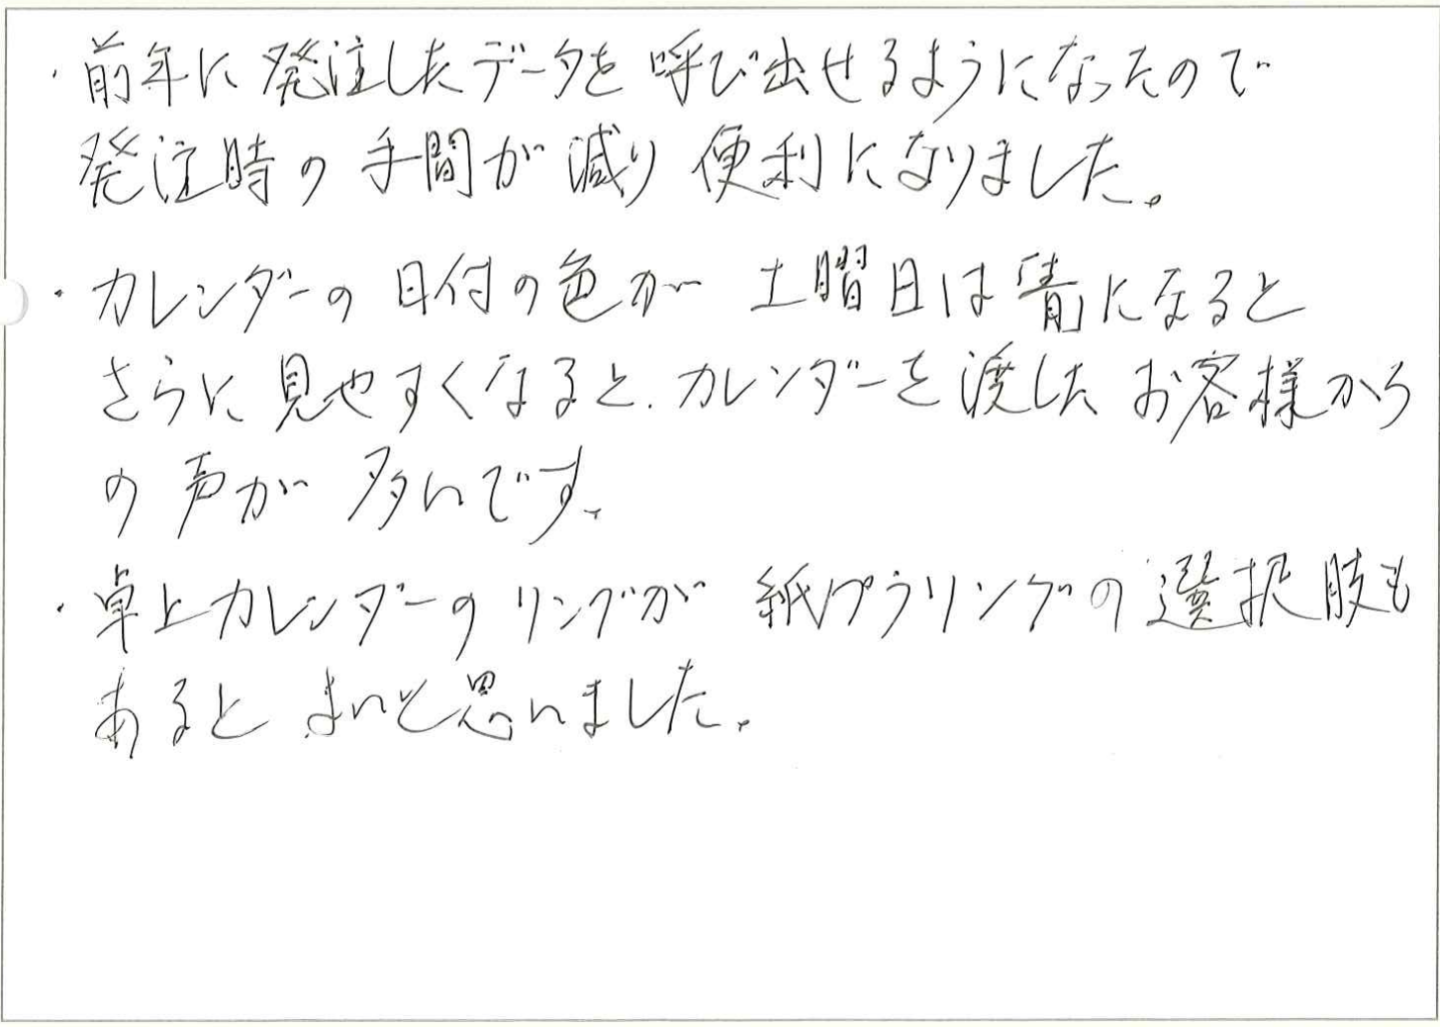 ・前年に発注したデータを呼び出せるようになったので
発注時の手間が減り便利になりました。
・カレンダーの日付の色が土曜日は青になると
さらに見やすくなると、カレンダーを渡したお客様から
の声が多いです。
・卓上カレンダーのリングが紙プラリングの選択肢も
あるとよいと思いました。